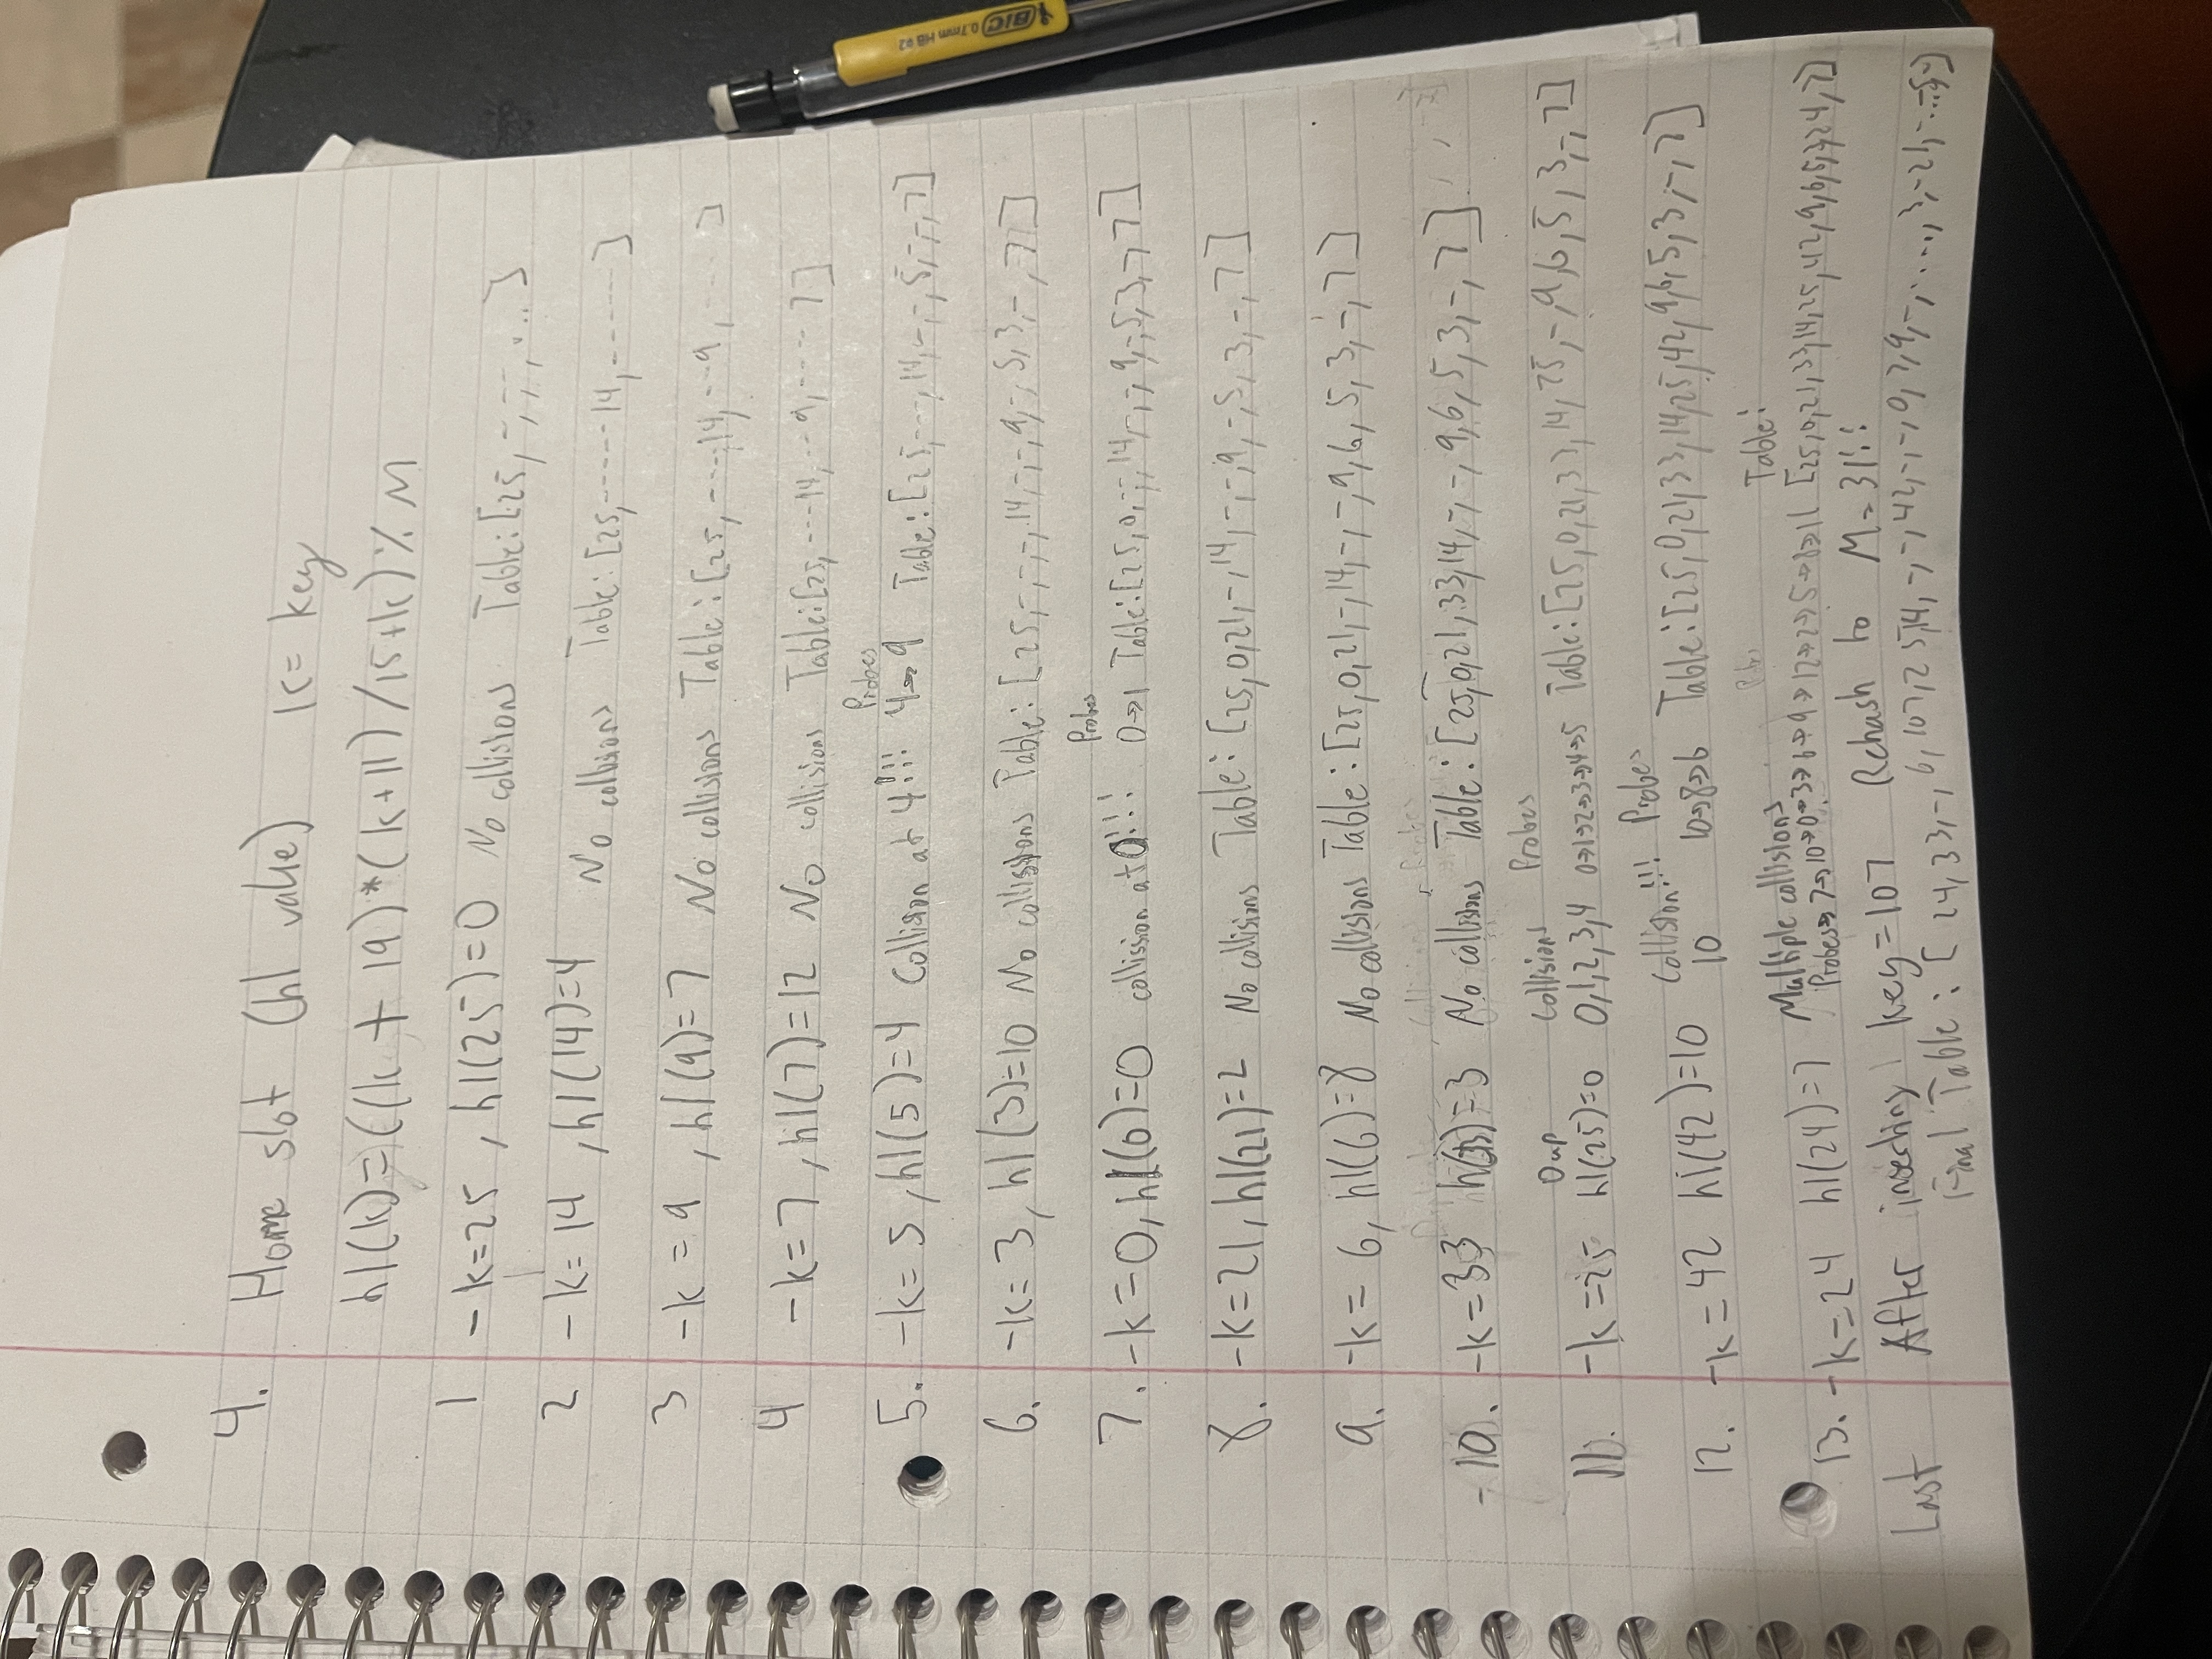 4. Home slot (h1 value) K = key
h1(k)=((k + 19)*(k+11)/15+k)% M
1 -k=25, h1(25)=0 No collisions Table:[25,-,-,-,...]
2 -k=14, h1(14)=4 No collisions Table:[25,-----14,------]
3 -k=9, h1(9)=7 No collisions Table:[25,----,14,--9,----]
4 -k=7, h1(7)=12 No collisions Table:[25,---14,--9,----7]
Probes
5. -k=5, h1(5)=4 Collision at 4!!! 4→9 Table:[25,---,14,-,-,5,-,-,7]
6. -k=3, h1(3)=10 No collisions Table:[25,-,-,-,14,-,-,9,-,5,3,-,7]
Probes
7. -k=0, h1(0)=0 collission at 0!!! 0→1 Table:[25,0,-,-,14,-,-,9,-,5,3,-,7]
8. -k=21, h1(21)=2 No collisions Table:[25,0,21,-,14,-,-,9,-,5,3,-,7]
9. -k=6, h1(6)=8 No collisions Table:[25,0,21,-,14,-,-,9,6,5,3,-,7]
-10. -k=33 h(33)=3 No collisions Table:[25,0,21,33,14,-,-,9,6,5,3,-,7]
Dup Collisions Probes
11. -k=25 h1(25)=0 0,1,2,3,4 0→1→2→3→4→5 Table:[25,0,21,33,14,25,-,9,6,5,3,-,7]
Collision!!! Probes
12. -k=42 h1(42)=10 10 10→8→6 Table:[25,0,21,33,14,25,42,9,6,5,3,-,7]
Multiple collisions Table:
13. -k=24 h1(24)=7 Probes→7→10→0→3→6→9→12→2→5→8→11 [25,0,21,33,14,25,42,9,6,5,3,24,7]
Last After inserting key=107 Rehash to M=31!!
Final Table: [24,33,-,6,107,25,14,-,-,42,-,-,0,7,9,-,....,3,-21,-...-5,-]
BIC 0.7mm HB #2